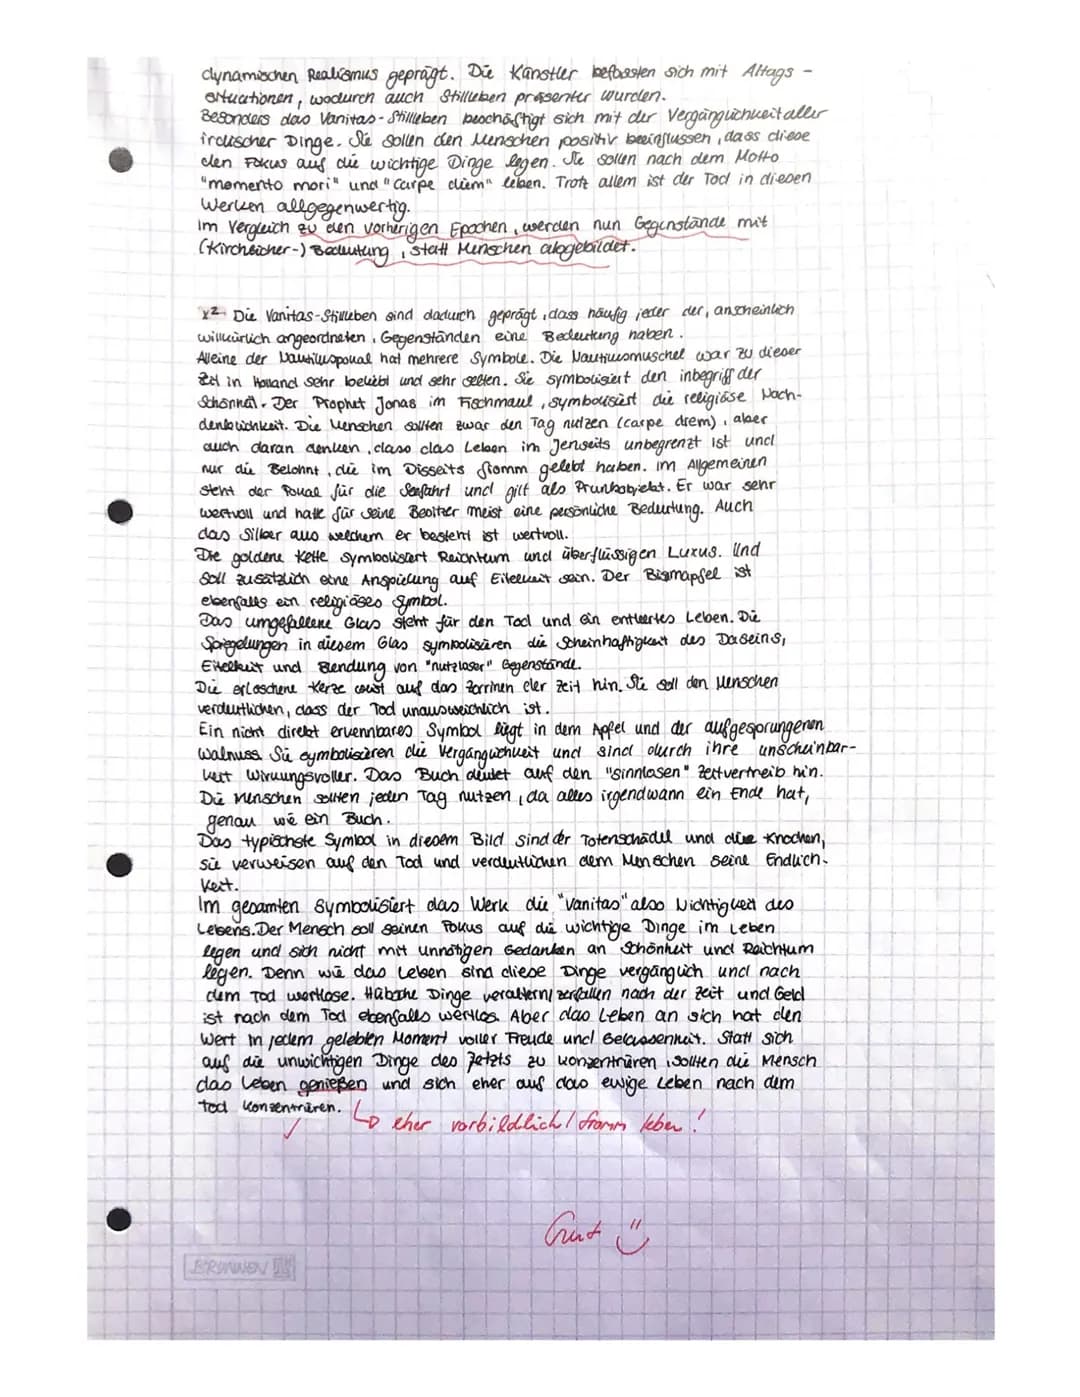 dynamischen Realismus geprägt. Die Künstler befassten sich mit Alltags-
situationen, wodurch auch Stillleben präsenter wurden.
Besonders das Vanitas-Stillleben beschäftigt sich mit der Vergänglichkeit aller
irdischer Dinge. Sie sollen den Menschen positiv beeinflussen, dass diese
den Fokus auf die wichtige Dinge legen. Sie sollen nach dem Motto
"momento mori" und "carpe diem" leben. Trotz allem ist der Tod in diesen
Werken allgegenwertig.
Im Vergleich zu den vorherigen Epochen, werden nun Gegenstände mit
(Kirchlicher-) Bedeutung, statt Menschen abgebildet.
2 Die Vanitas-Stillleben sind dadurch geprägt, dass häufig jeder der, anscheinlich
willkürlich angeordneten, Gegenständen eine Bedeutung haben.
Alleine der Nautiluspokal hat mehrere Symbole. Die Nautilusmuschel war zu dieser
Zeit in Holland sehr beliebt und sehr selten. Sie symbolisiert den inbegriff der
Schönheit. Der Prophet Jonas im Fischmaul, symbolisiert die religiöse Nach-
denklichkeit. Die Menschen sollten zwar den Tag nutzen (carpe diem), aber
auch daran denken, dass das Leben im Jenseits unbegrenzt ist und
nur die Belohnt, die im Disseits fromm gelebt haben. Im Allgemeinen
steht der Pokal für die Seefahrt und gilt als Prunkobjekt. Er war sehr
wertvoll und hatte für seine Besitzer meist eine persönliche Bedeutung. Auch
das Silber aus welchem er besteht ist wertvoll.
Die goldene Kette symbolisiert Reichtum und überflüssigen Luxus. Und
soll zusätzlich eine Anspielung auf Eitelkeit sein. Der Bismapfel ist
ebenfalls ein religiöses Symbol.
Das umgefallene Glas steht für den Tod und ein entleertes Leben. Die
Spiegelungen in diesem Glas symbolisieren die Scheinhaftigkeit des Daseins,
Eitelkeit und Blendung von "nutzloser" Gegenstände.
Die erloschene Kerze weist auf das Zerrinen der Zeit hin. Sie soll den Menschen
verdeutlichen, dass der Tod unausweichlich ist.
Ein nicht direkt erkennbares Symbol liegt in dem Apfel und der aufgesprungenen
Walnuss. Sie symbolisieren die Vergänglichkeit und sind durch ihre unscheinbar-
keit Wirkungsvoller. Das Buch deutet auf den "sinnlosen" Zeitvertreib hin.
Die Menschen sollten jeden Tag nutzen, da alles irgendwann ein Ende hat,
genau wie ein Buch.
Das typischste Symbol in diesem Bild sind der Totenschädel und die Knochen,
sie verweisen auf den Tod und verdeutlichen dem Menschen seine Endlich-
keit.
Im gesamten symbolisiert das Werk die "Vanitas" also Nichtigkeit des
Lebens. Der Mensch soll seinen Fokus auf die wichtige Dinge im Leben
legen und sich nicht mit unnötigen Gedanken an Schönheit und Reichtum
legen. Denn wie das Leben sind diese Dinge vergänglich und nach
dem Tod wertlose. Hübsche Dinge veraltern/zerfallen nach der Zeit und Geld
ist nach dem Tod ebenfalls wertlos. Aber das Leben an sich hat den
Wert in jedem gelebten Moment voller Freude und Gelassenheit. Statt sich
auf die unwichtigen Dinge des Jetzts zu konzentrieren, sollten die Mensch
das Leben genießen und sich eher auf das ewige Leben nach dem
Tod konzentrieren.
↳ eher vorbildlich / fromm leben!
Gut
BRUNNEN